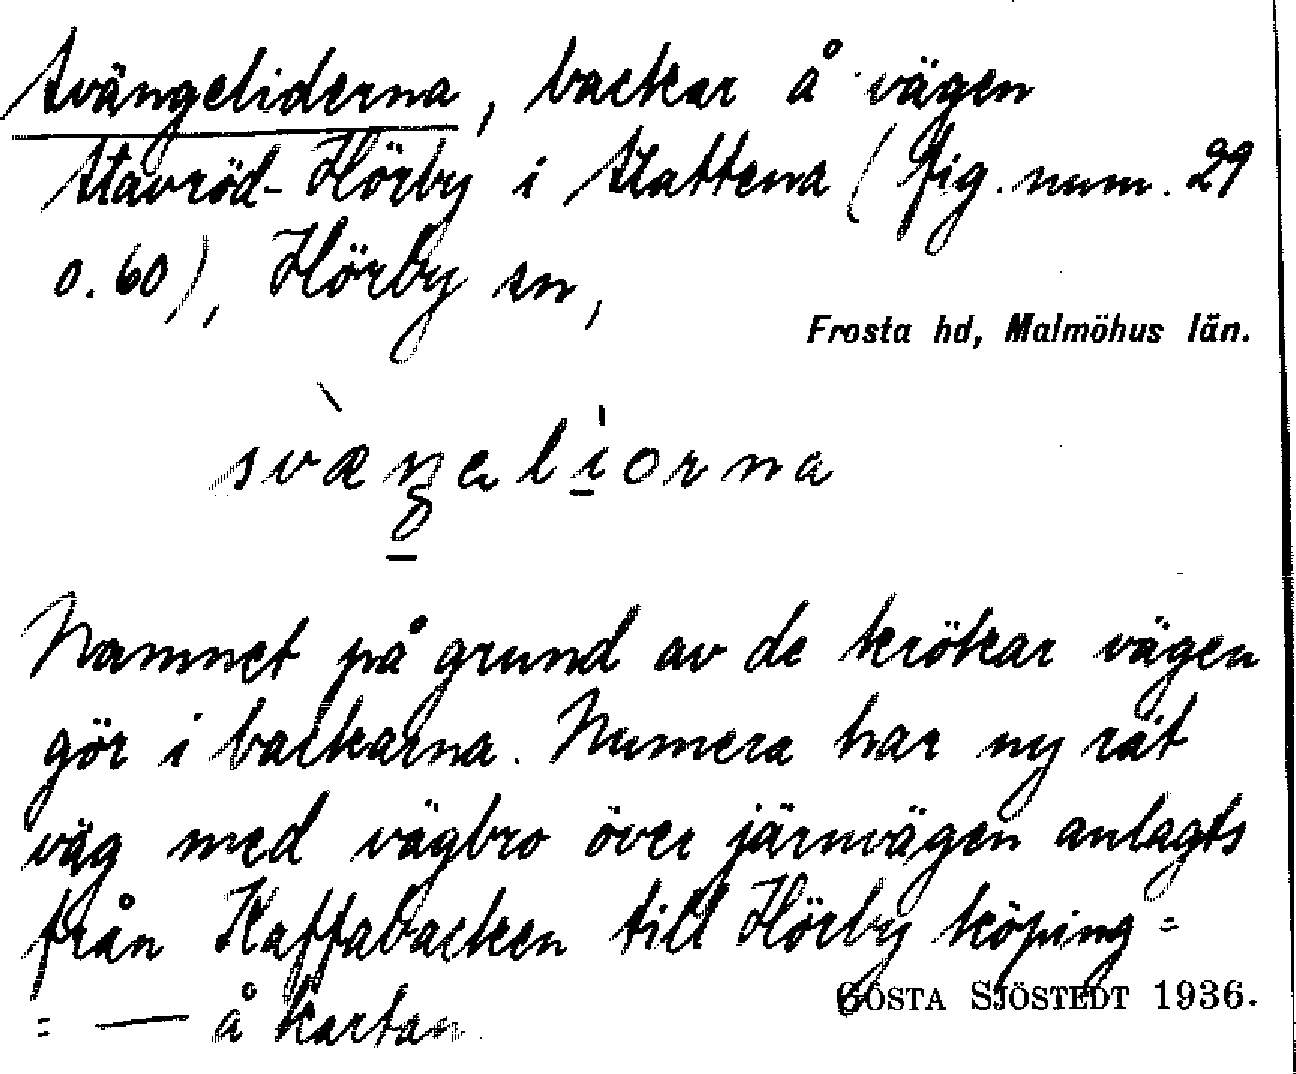 Svängeliderna, backar å vägen
Stavröd-Hörby i Slättena (fig. num. 29
o. 60), Hörby sn,
Frosta hd, Malmöhus län.
svæŋəliorna
Namnet på grund av de krökar vägen
gör i backarna. Numera har ny rät
väg med vägbro över järnvägen anlagts
från Kaffabacken till Hörby köping =
= — å kartan
GÖSTA SJÖSTEDT 1936.